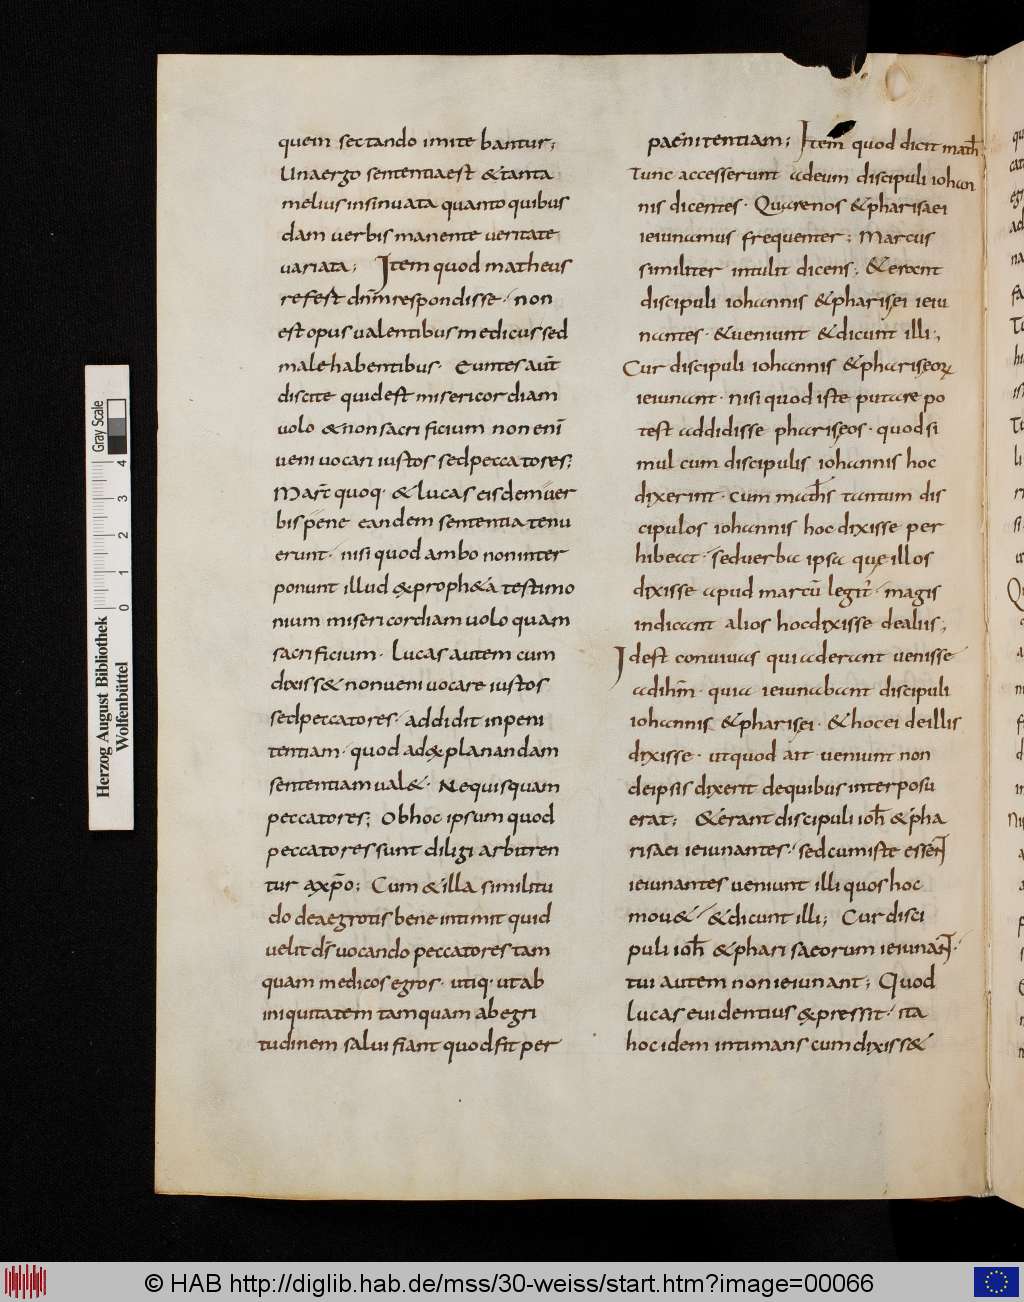 quem sectando imite bantur;
Una ergo sententia est & tanta
melius insinuata quanto quibus
dam uerbis manente ueritate
uariata; Item quod matheus
refest dnm̄ respondisse· non
est opus ualentibus medicus sed
male habentibus· Euntes aut̄
discite quid est misericordiam
uolo & non sacrificium non enī
ueni uocari iustos sed peccatores;
Marc̄ quoq· & lucas eisdem uer
bis pene eandem sententia tenu
erunt· nisi quod ambo non inter
ponunt illud & proph&a testimo
nium misericordiam uolo quam
sacrificium· Lucas autem cum
dixiss& non ueni uocare iustos
sed peccatores· addidit in peni
tentiam· quod ad explanandam
sententiam ual&· Ne quisquam
peccatores; Ob hoc ipsum quod
peccatores sunt diligi arbitren
tur a xp̄o; Cum & illa similitu
do de aegrotis bene intimit quid
uelit ds̄ uocando peccatores tam
quam medicos egros· utiq· ut ab
iniquitatem tamquam ab egri
tudinem salui fiant quod fit per
paenitentiam; Item quod dicit math̄
Tunc accesserunt ad eum discipuli iohan
nis dicentes· Quare nos & pharisaei
ieiunamus frequenter; Marcus
similiter intulit dicens; & erant
discipuli iohannis & pharisei ieiu
nantes· & ueniunt & dicunt illi·,
Cur discipuli iohannis & phariseoꝝ
ieiunant· nisi quod iste putare po
test addidisse phariseos· quod si
mul cum discipulis iohannis hoc
dixerint· cum math̄s tantum dis
cipulos iohannis hoc dixisse per
hibeat· sed uerba ipsa que illos
dixisse apud marcū legit̄· magis
indicant alios hoc dixisse de aliis·,
Id est conuiuas qui aderant uenisse
ad ihm̄· quia ieiunabant discipuli
iohannis & pharisei· & hoc ei de illis
dixisse· ut quod ait ueniunt non
de ipsis dixerit de quibus interposu
erat; & erant discipuli ioh̄ & pha
risaei ieiunantes· sed cum iste essent
ieiunantes ueniunt illi quos hoc
mou& & dicunt illi; Cur disci
puli ioh̄ & pharisaeorum ieiunant·
tui autem non ieiunant; Quod
lucas euidentius expressit· ita
hoc idem intimans cum dixiss&
Herzog August Bibliothek
Wolfenbüttel
0 1 2 3 4
Gray Scale
© HAB http://diglib.hab.de/mss/30-weiss/start.htm?image=00066